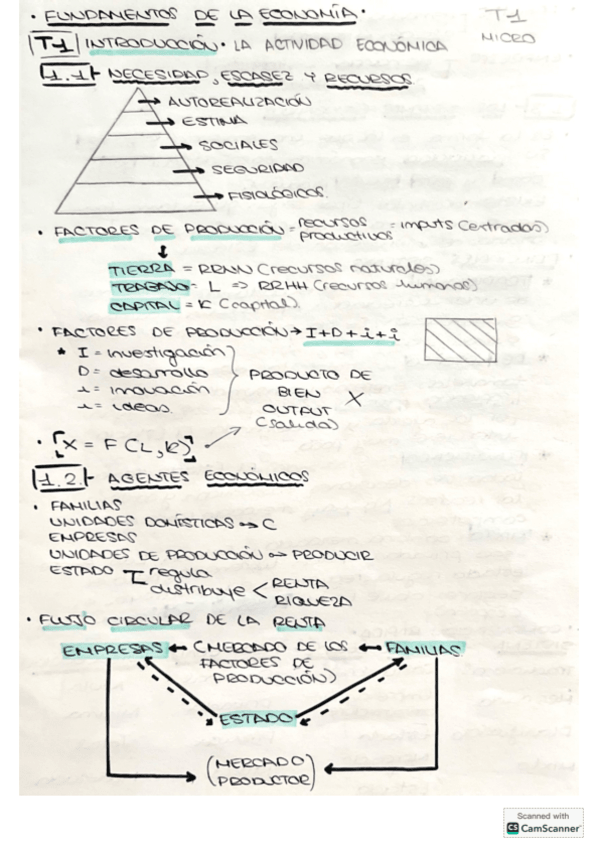 • FUNDAMENTOS DE LA ECONOMÍA •
T1
MICRO
T1 INTRODUCCIÓN • LA ACTIVIDAD ECONÓMICA
1.1 - NECESIDAD, ESCASEZ Y RECURSOS
→ AUTOREALIZACIÓN
→ ESTIMA
→ SOCIALES
→ SEGURIDAD
→ FISIOLÓGICOS
• FACTORES DE PRODUCCIÓN = recursos productivos = imputs (entradas)
↓
TIERRA = RRNN (recursos naturales)
TRABAJO = L => RRHH (recursos humanos)
CAPITAL = K (capital).
• FACTORES DE PRODUCCIÓN → I+D+i+i
* I = investigación
D = desarrollo
i = innovación
i = ideas.
PRODUCTO DE
BIEN X
OUTPUT
(salida)
• [X = F (L, K)]
1.2 - AGENTES ECONÓMICOS
• FAMILIAS
UNIDADES DOMÍSTICAS → C
EMPRESAS
UNIDADES DE PRODUCCIÓN → PRODUCIR
ESTADO regula
distribuye < RENTA
RIQUEZA
• FLUJO CIRCULAR DE LA RENTA
EMPRESAS ← (MERCADO DE LOS ← FAMILIAS
FACTORES DE
PRODUCCIÓN)
ESTADO
(MERCADO
PRODUCTOR)
Scanned with
CS CamScanner